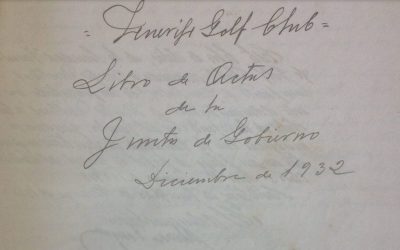 = Tenerife Golf Club =
Libro de Actas
de la
Junta de Gobierno
Diciembre de 1932